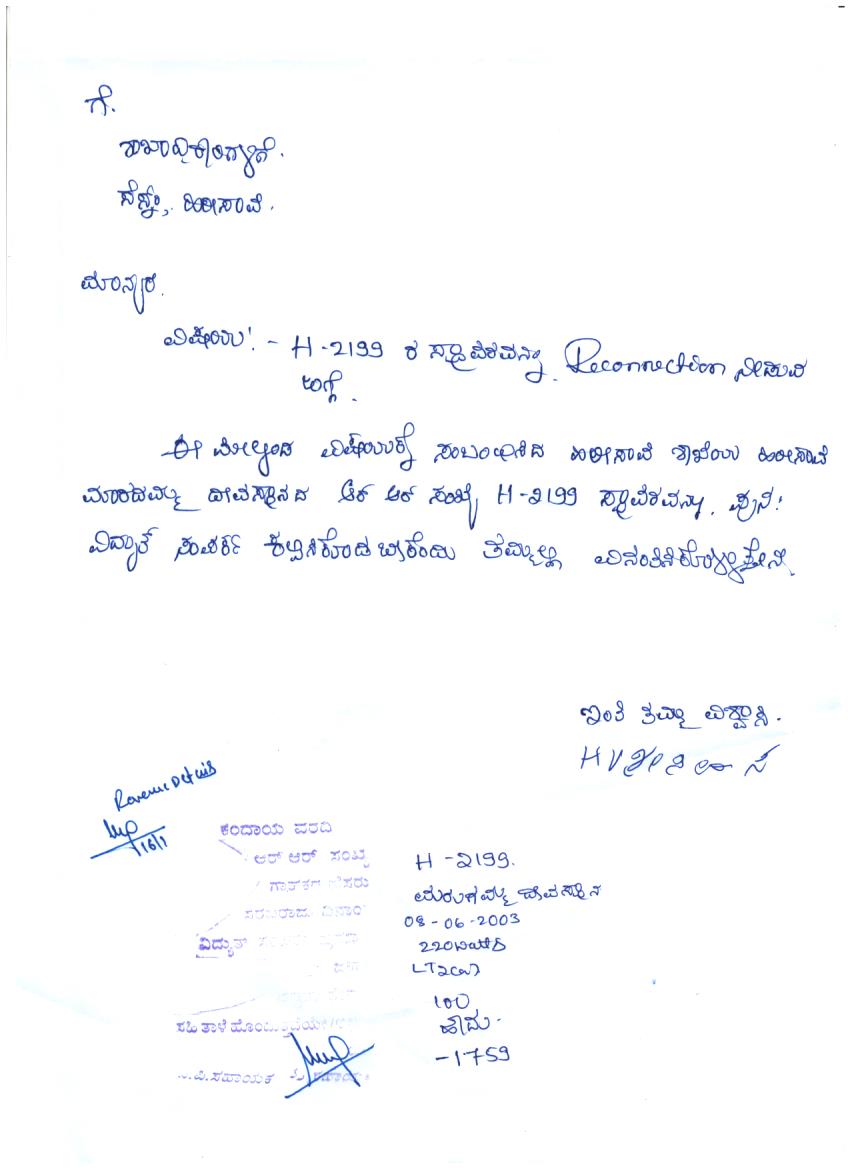 ಗೆ.
ಶಾಖಾಧಿಕಾರಿಗಳಿಗೆ.
ಹಿರೀಸಾವೆ.
ಮಾನ್ಯರೆ.
ವಿಷಯ: - H-2199 ರ ಸ್ಥಾವರವನ್ನು Reconnection ನೀಡುವ
ಬಗ್ಗೆ.
ಈ ಮೇಲ್ಕಂಡ ವಿಷಯಕ್ಕೆ ಸಂಬಂಧಿಸಿದ ಹಿರೀಸಾವೆ ಶಾಖೆಯ ಹಿರೀಸಾವೆ
ದೇವಸ್ಥಾನದ ಆರ್ ಆರ್ ಸಂಖ್ಯೆ H-2199 ಸ್ಥಾವರವನ್ನು ಪುನ:
ವಿದ್ಯುತ್ ಸಂಪರ್ಕ ಕಲ್ಪಿಸಿಕೊಡಬೇಕೆಂದು ತಮ್ಮಲ್ಲಿ ವಿನಂತಿಸಿಕೊಳ್ಳುತ್ತೇನೆ.
ಇಂತಿ ತಮ್ಮ ವಿಶ್ವಾಸಿ.
Revenue Details
16/1
ಕಂದಾಯ ವರದಿ
ಆರ್ ಆರ್ ಸಂಖ್ಯೆ H-2199.
ಗ್ರಾಹಕರ ಹೆಸರು ದೇವಸ್ಥಾನ
08-06-2003
ವಿದ್ಯುತ್ 220
LT2
100
ಸಹಿ ತಾಳೆ ಹೌದು.
-1759
ಸಹಾಯಕ